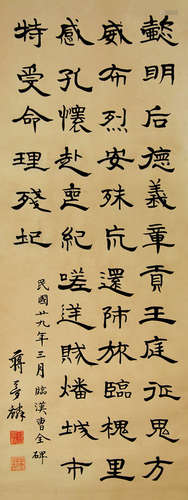 懿明后德義章貢王庭征鬼方
威布烈安殊巟還師旅臨槐里
感孔懷赴喪紀嗟逆賊燔城市
特受命理殘圮
民國廿九年三月臨漢曹全碑
蔣夢麟